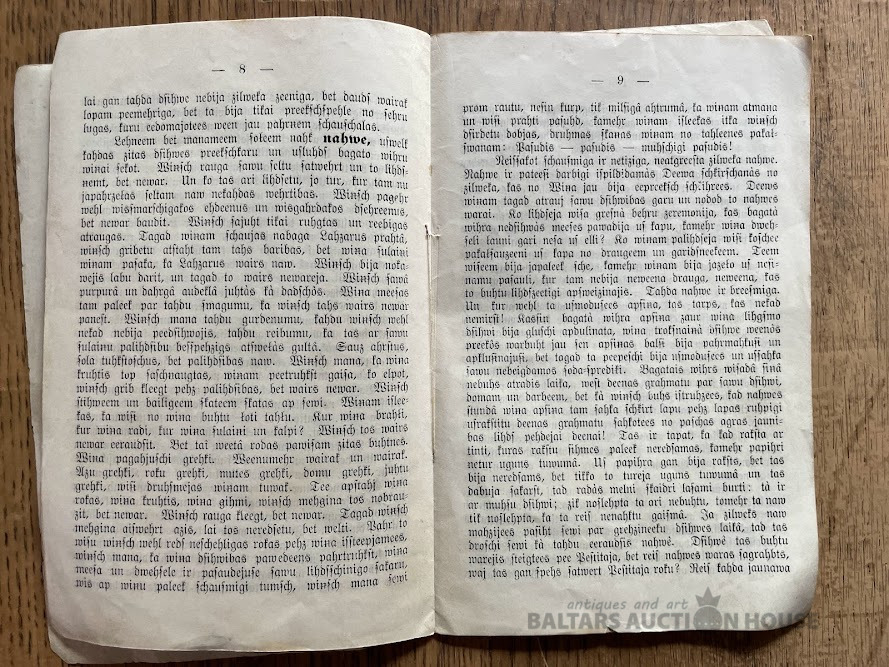 — 8 —
lai gan tahda dsihwe nebija zilweka zeeniga, bet daudſ wairak
lopam peemehriga, bet ta bija tikai preekſchſpehle no ſehru
lugas, kuru eedomajotees ween jau pahrnem ſchauſchalas.
Lehneem bet manameem ſoleem nahk nahwe, uſwelk
kahdas zitas dſihwes preekſchkaru un uſluhdſ bagato wihru
winai ſekot. Winſch rauga ſawu ſeltu ſatwehrt un to lihdſ-
ņemt, bet newar. Un ko tas ari lihdſetu, jo tur, kur tam nu
japahrzeļas ſeltam naw nekahdas wehrtibas. Winſch pagehr
wehl wiſmarſchigakos ehdeenus un wiſgahrdakos dſehreenus,
bet newar baudit. Winſch ſajuht tikai ruhgtas un reebigas
atraugas. Tagad winam ſchaujas nabaga Lahzarus prahtâ,
winſch gribetu atſtaht tam tahs baribas, bet wina ſulaini
winam paſaka, ka Lahzarus wairs naw. Winſch bija noka-
wejis labu darit, un tagad to wairs newareja. Winſch ſawâ
purpurâ un dahrgâ audeklâ juhtâs kâ dadſchôs. Wina meeſas
tam paleek par tahdu ſmagumu, ka winſch tahs wairs newar
paneſt. Winſch mana tahdu gurdenumu, kahdu winſch wehl
nekad nebija peedſihwojis, tahdu reibumu, ka tas ar ſawu
ſulainu palihdſibu beſſpehzigs atſwelàs gultâ. Sauz ahrſtus,
ſola tuhkſtoſchus, bet palihdſibas naw. Winſch mana, ka wina
kruhtis top ſaſchnaugtas, winam peetruhkſt gaiſa, ko elpot,
winſch grib kleegt pehz palihdſibas, bet wairs newar. Winſch
ſtihweem un bailigeem ſkateem ſkatas ap ſewi. Winam iſlee-
kas, ka wiſi no wina buhtu ļoti tahlu. Kur wina brahļi,
kur wina radi, kur wina ſulaini un kalpi? Winſch tos wairs
newar eeraudſit. Bet tai weetâ rodas pawiſam zitas buhtnes.
Wina pagahjuſchi grehki. Weenumehr wairak un wairak.
Azu grehki, roku grehki, mutes grehki, domu grehki, juhtu
grehki, wiſi druhſmejas winam tuwak. Tee apſtahj wina
rokas, wina kruhtis, wina gihmi, winſch mehgina tos nobrau-
zit, bet newar. Winſch rauga kleegt, bet newar. Tagad winſch
mehgina aiſwehrt azis, lai tos neredſetu, bet welti. Pahr to
wiſu winſch wehl redſ neſchehligas rokas pehz wina iſſteepjamees,
winſch mana, ka wina dſihwibas pawedeens pahrtruhkſt, wina
meeſa un dwehſele ir paſaudejuſe ſawu lihdſſchinigo ſakaru,
wis ap winu paleek ſchauſmigi tumſch, winſch mana ſewi
— 9 —
prom rautu, neſin kurp, tik milſigâ ahtrumâ, ka winam atmana
un wiſi prahti paſuhd, kamehr winam iſleekas itka winſch
dſirdetu dobjas, druhmas ſkanas winam no tahleenes pakaļ-
ſwanam: Paſudis — paſudis — muhſchigi paſudis!
Neiſſakot ſchauſmiga ir netiziga, neatgreeſta zilweka nahwe.
Nahwe ir pateeſi darbigi iſpildidamàs Deewa ſchkirſchanâs no
zilweka, kas no Wina jau bija eepreekſch ſchķihrees. Deews
winam tagad atrauj ſawu dſihwibas garu un nodod to nahwes
warai. Ko lihdſeja wiſa greſnà behru zeremonija, kas bagatà
wihra nedſihwàs meeſes pawadija uſ kapu, kamehr wina dweh-
ſeli launi gari neſa uſ elli? Ko winam palihdſeja wiſi koſchee
pakaļſauzeeni uſ kapa no draugeem un garidſneekeem. Teem
wiſeem bija japaleek ſche, kamehr winam bija jazeļo uſ neſi-
namu paſauli, kur tam nebija neweena drauga, neweena, kas
to buhtu lihdſzeetigi apſweizinajis. Tahda nahwe ir breeſmiga.
Un kur wehl ta uſmoduſees apſiņa, tas tarps, kas nekad
nemirſt! Kaſſin bagatà wihra apſiņa zaur wina lihgſmo
dſihwi bija gluſchi apdullinata, wina trokſnainà dſihwe weenôs
preekôs warbuht jau ſen apſiņas balſi bija pahrmahkuſi un
apkluſinajuſi, bet tagad ta peepeſchi bija uſmoduſees un uſſahka
ſawu nebeigdamos ſoda-ſprediķi. Bagatais wihrs wiſadà ſinà
nebuhs atradis laika, weſt deenas grahmatu par ſawu dſihwi,
domam un darbeem, bet kà winſch buhs iſtruhzees, kad nahwes
ſtundà wina apſiņa tam ſahka ſchkirt lapu pehz lapas ruhpigi
uſrakſtitu deenas grahmatu ſahkotees no paſchas agras jauni-
bas lihdſ pehdejai deenai! Tas ir tapat, ka kad rakſta ar
tinti, kuras rakſtu ſihmes paleek neredſamas, kamehr papihri
netur uguns tuwumâ. Uſ papihra gan bija rakſts, bet tas
bija neredſams, bet tikko to tureja uguns tuwumâ un tas
dabuja ſakarſt, tad radâs melni ſkaidri laſami burti: tà ir
ar muhſu dſihwi; zik noſlehpta ta ari nebuhtu, tomehr ta naw
tik noſlehpta, ka ta reiſ nenahktu gaiſmâ. Ja zilweks naw
mahzijees paſiht ſewi par grehzineeku dſihwes laikâ, tad tas
droſchi ſewi kà tahdu eeraudſis nahwê. Dſihwê tas buhtu
warejis ſteigtees pee Peſtitaja, bet reiſ nahwes waras ſagrahbts,
waj tas gan ſpehs ſatwert Peſtitaja roku? Reiſ kahda jaunawa
antiques and art
BALTARS AUCTION HOUSE